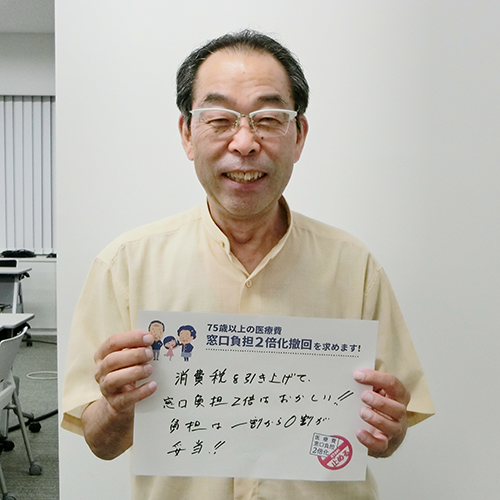 75歳以上の医療費
窓口負担2倍化撤回を求めます!
消費税を引き上げて、
窓口負担2倍はおかしい!!
負担は一割から0割が
妥当!!
医療費
窓口負担
2倍化
止める